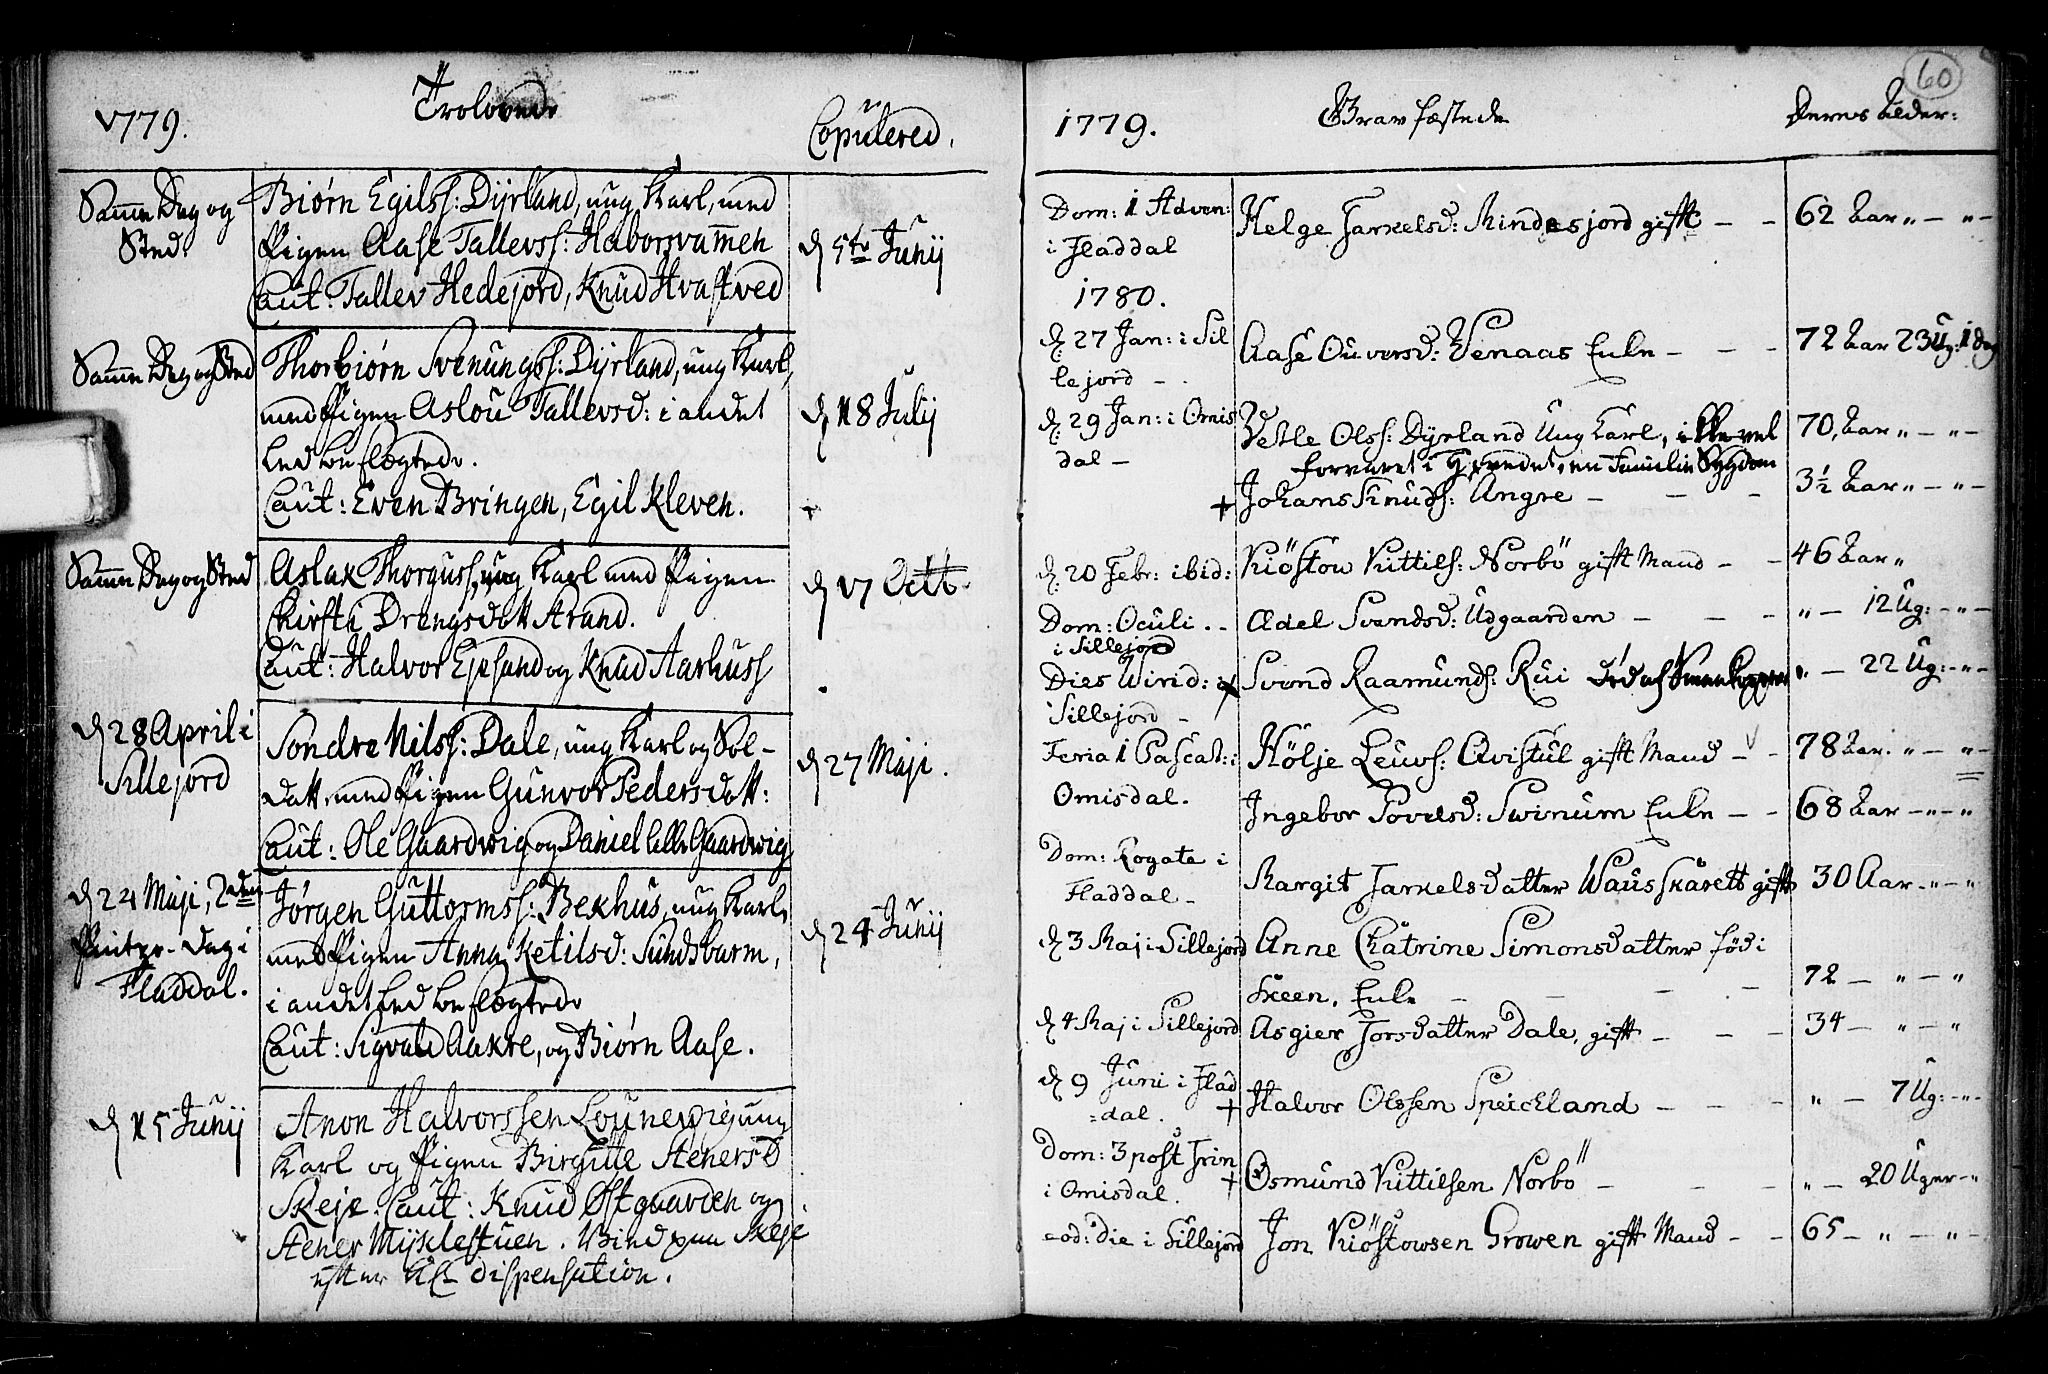 1779.
Trolovede
Copulered.
Samme Dag og
Sted.
Biørn Egilss: Dÿrland, ung Karl, med
Pigen Aase Tallevss: Haborsvammen
Caut: Tallev Hedejord, Knud Hvastved
d 5te Junij
Samme Dag og Sted
Thorbiørn Svenungss: Dÿrland, ung Karl,
med Pigen Aslou Tallevsd: i andet
Led beslægtede.
Caut: Even Bringen, Egil Kleven.
d 18 Julij
Samme Dag og Sted
Aslak Thorguss, ung Karl med Pigen
Kirsti Drengsdatt Strand.
Caut: Halvor Ejesund og Knud Aarhuss
d 17 Octb.
d 28 April i
Sillejord
Sondre Nilss: Dale, ung Karl og Sol-
dat, med Pigen Gunvor Pedersdatt:
Caut: Ole Gaardwig og Daniel Gaardwig
d 27 Maji.
d 24 Maji, 2den
Pintze-Dag i
Fladdal.
Jørgen Guttormss: Bekhus, ung Karl,
med Pigen Anna Ketilsd: Sundsbarm,
i andet Led beslægtede
Caut: Sigvald Aakre, og Biørn Aase.
d 24 Junij
d 15 Junij
Anon Halvorssen Lounewig ung
Karl og Pigen Birgitte Stenersd
Skeje. Caut: Knud Østgaarden og
Stener Mÿklestuen. Skeje
efter dispensation.
60
1779.
Gravfæstede
Deres Alder:
Dom: 1 Adven:
i Fladdal
Helge Tarkelsd: Mindesjord gift - -
62 Aar „ - „ -
1780.
d. 27 Jan: i Sil
lejord -
Aase Ouversd: Venaas Enke - - -
72 Aar 23 Ug: 1 dag
d. 29 Jan: i Omis
dal -
Vetle Olss: Dyrland Ung Karl, ilde vel
70, Aar „ - „ -
forvaret i Hovedet, en Familie Sygdom
+ Johans Knuds: Angre - - -
3½ Aar „ - „ -
d. 20 Febr: ibid:
Kiöstou Kittils: Norbö gift Mand - -
46 Aar „
Dom: Oculi. -
i Sillejord
Ædel Svendsd: Udgaarden - - -
„ - 12 Ug: - „ -
Dies Virid:
i Sillejord -
Svend Raamunds: Rui død af Smaakopper
„ - 22 Ug: - „ -
Feria 1 Pascat: i
Omisdal.
Hölje Leuvs: Qvistul gift Mand - -
78 Aar. „ - „ -
Ingebor Povelsd: Swinum Enke - -
68 Aar - „ - „
Dom: Rogate i
Fladdal -
Margit Tarkelsdatter Wausskarett gift
30 Aar - „ - „
d. 3 Maj i Sillejord
Anne Chatrine Simonsdatter fød i
Skeen, Enke - - - -
72 - „ - „
d. 4 Maj i Sillejord
Asgier Torsdatter Dale, gift - - -
34 - „ - „
d. 9 Juni i Flad
=dal.
+ Halvor Olssen Speickland - - -
„ - 7 Ug: - „ -
Dom: 3 post Trin
i Omisdal.
+ Osmund Kittilsen Norbö - - -
„ - 20 Uger - „
eod: die i Sillejord
Jon Kiöstowsen Growen gift Mand - -
65 - „ - „ -